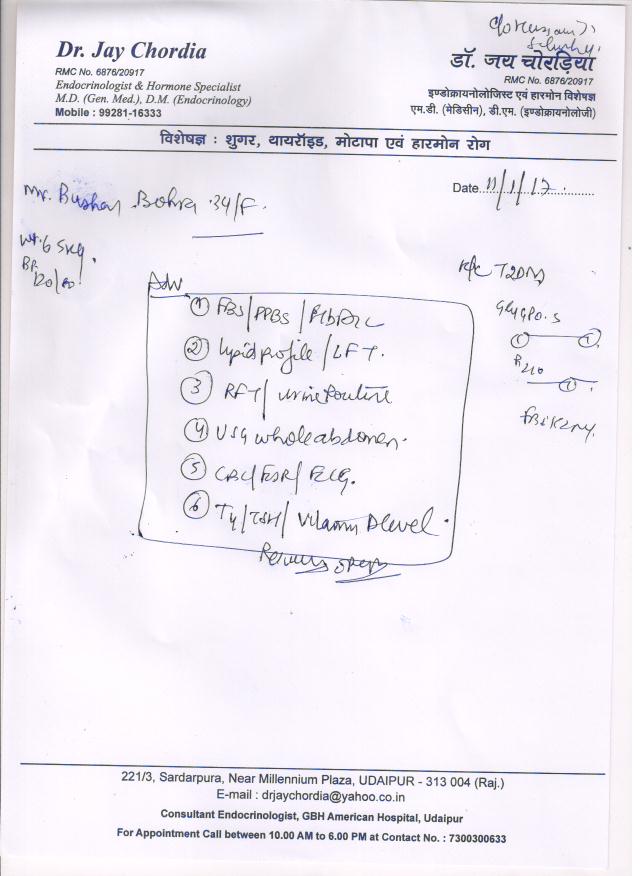 Dr. Jay Chordia
RMC No. 6876/20917
Endocrinologist & Hormone Specialist
M.D. (Gen. Med.), D.M. (Endocrinology)
Mobile : 99281-16333
डॉ. जय चोरड़िया
RMC No. 6876/20917
इण्डोक्रायनोलोजिस्ट एवं हारमोन विशेषज्ञ
एम.डी. (मेडिसीन), डी.एम. (इण्डोक्रायनोलोजी)
विशेषज्ञ : शुगर, थायरॉइड, मोटापा एवं हारमोन रोग
Date 11/1/17
Bohra 34/F.
BP
120/80
Adv
K/c T2DM
① FBS/PPBS/HbA1c
② Lipid profile/LFT.
③ RFT/urine routine
④ USG whole abdomen.
⑤ CBC/ESR/ECG.
⑥ T4/TSH/Vitamin D level.
221/3, Sardarpura, Near Millennium Plaza, UDAIPUR - 313 004 (Raj.)
E-mail : drjaychordia@yahoo.co.in
Consultant Endocrinologist, GBH American Hospital, Udaipur
For Appointment Call between 10.00 AM to 6.00 PM at Contact No. : 7300300633